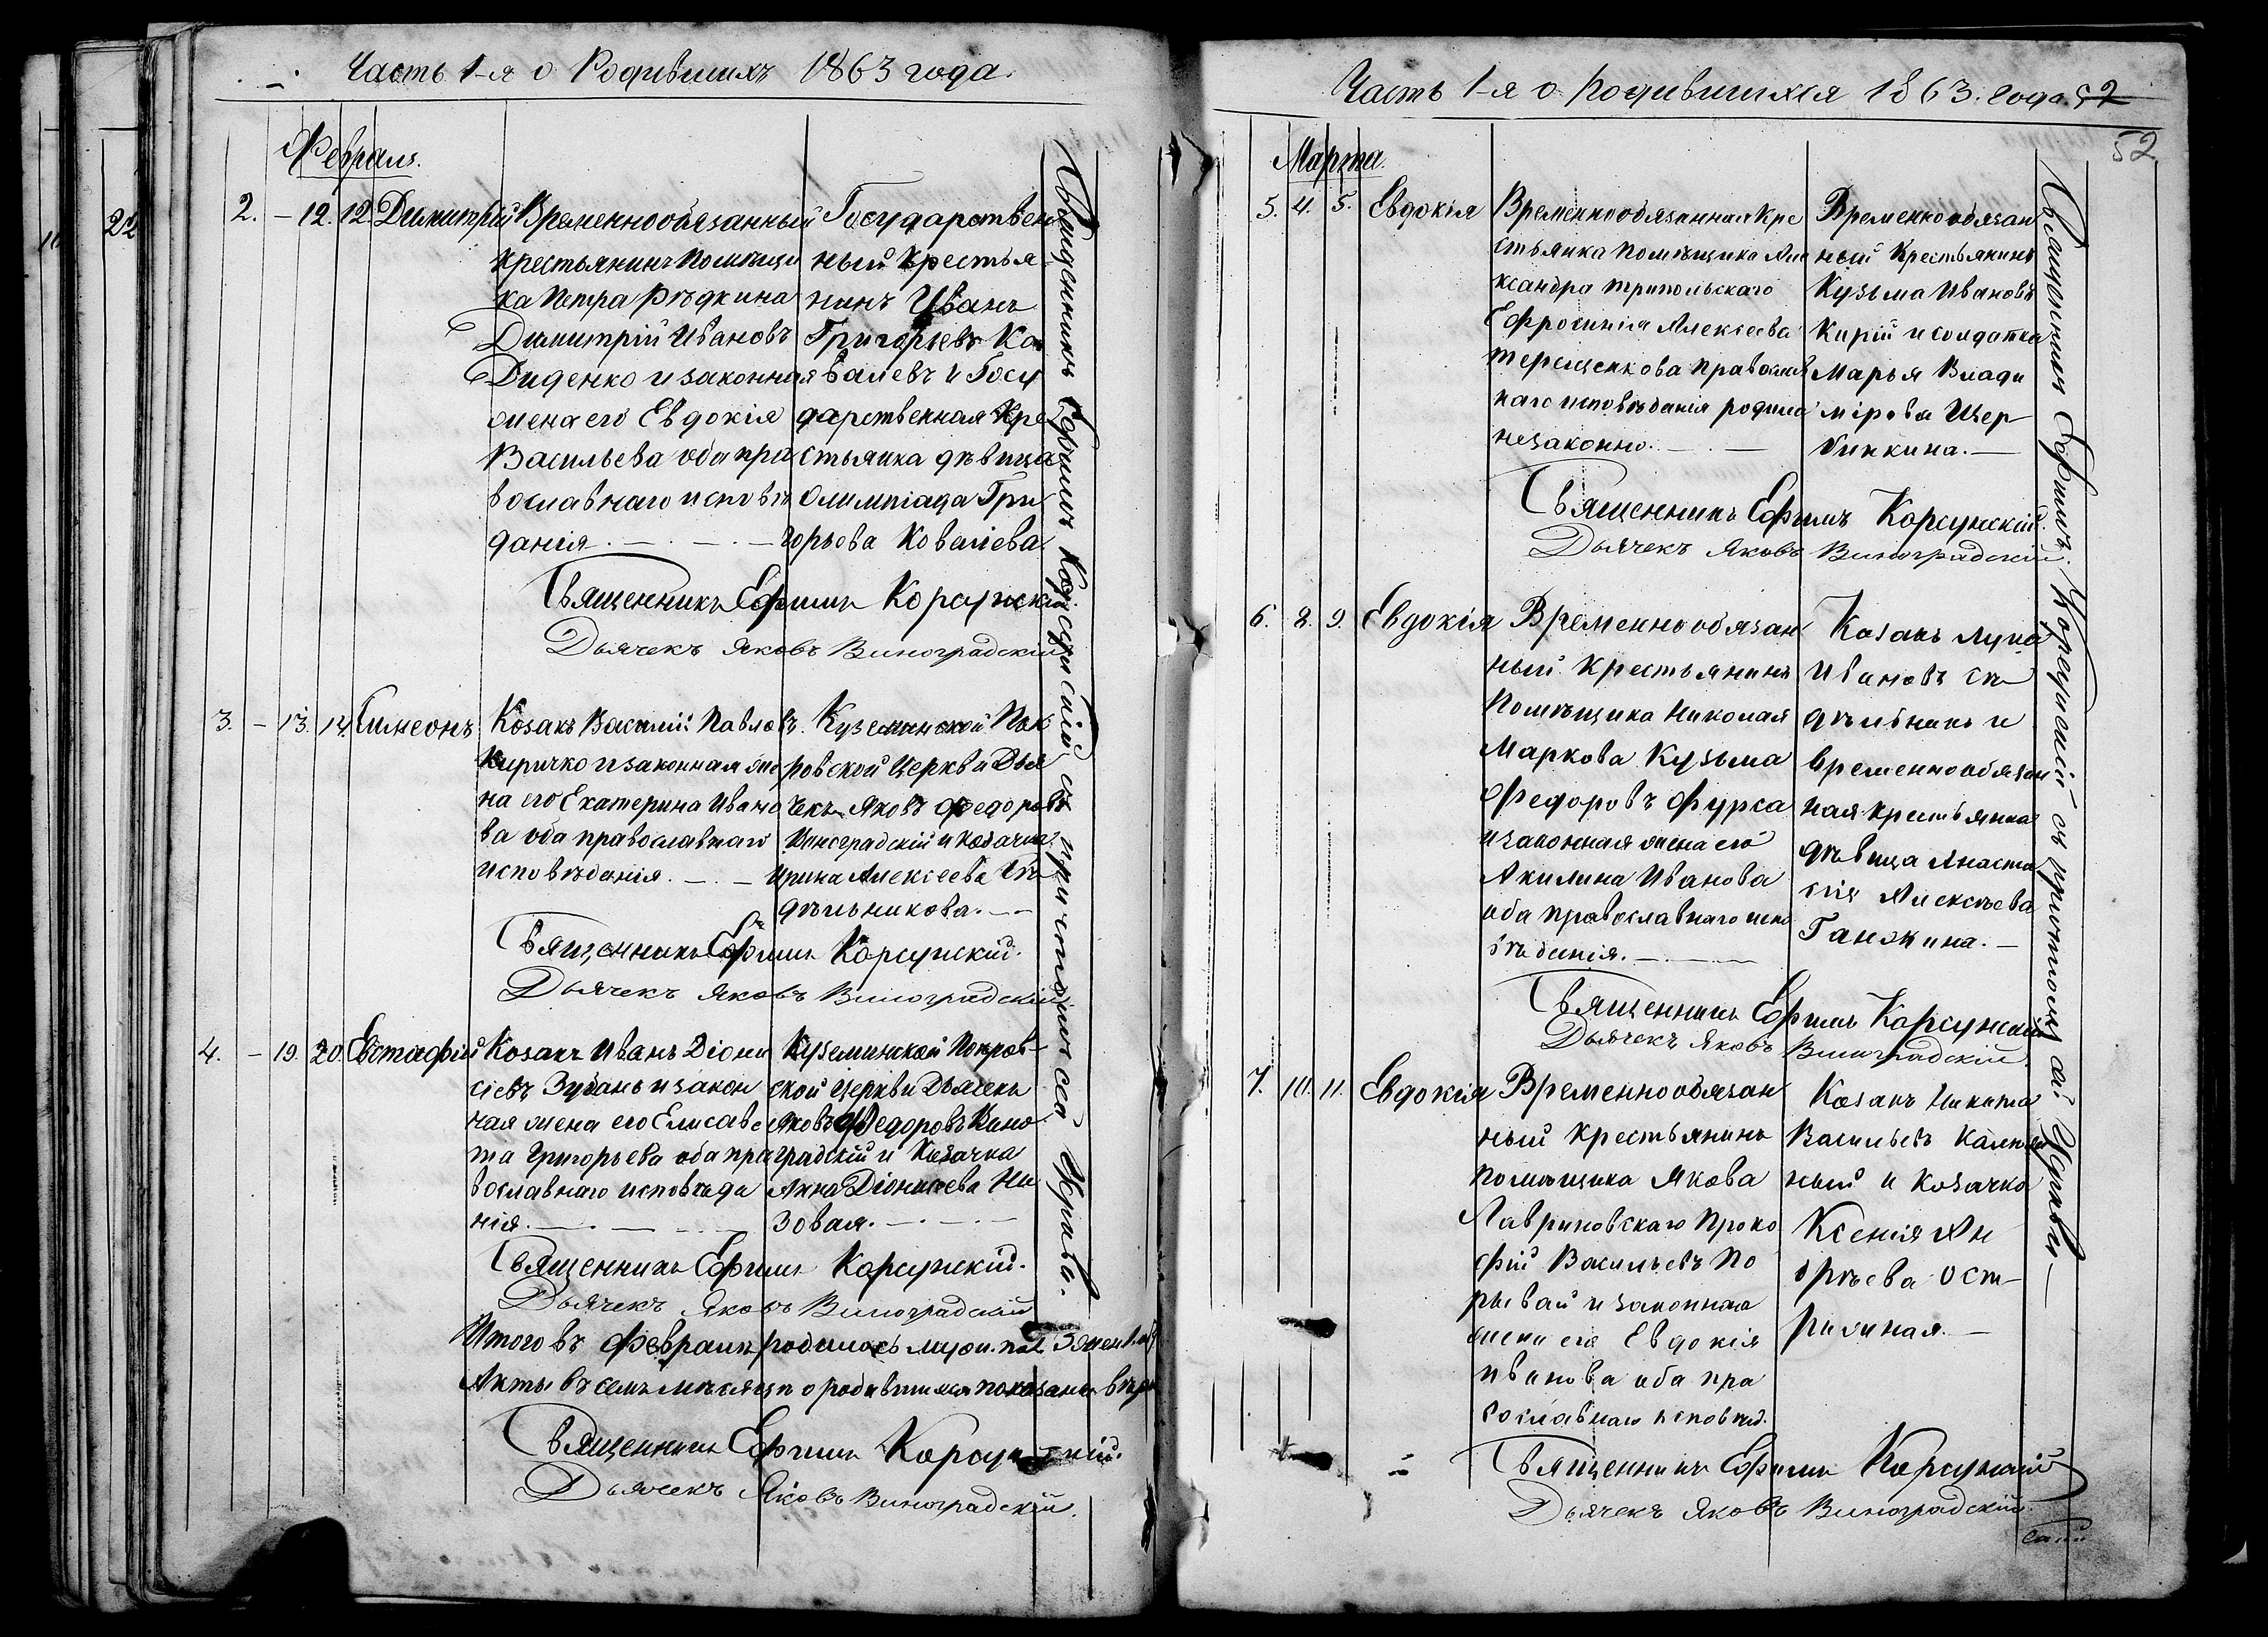 Часть 1-я о Родившихъ 1863 года.
Февраля.
22
2. – 12. 12. Димитрій
Временнообязанный
крестьянинъ Помѣщи
ка Петра Рѣдкина
Димитрій Ивановъ
Диденко и законная
жена его Евдокія
Васильева оба пра
вославнаго исповѣ
данія. — . — . —
Государствен
ный крестья
нинъ Иванъ
Григорьевъ Ко
валевъ и Госу
дарственная Кре
стьянка дѣвица
Олимпіада Гри
горьева Ковалева.
Священникъ Ефимъ Корсунскій
Дьячекъ Яковъ Виноградскій
3. – 13. 14. Симеонъ
Козакъ Василій Павловъ
Киричко и законная же
на его Екатерина Ивано
ва оба православнаго
исповѣданія. — . —
Куземинской Пок
ровской Церкви Дья
чекъ Яковъ Федоровъ
Виноградскій и козачка
Ирина Алексеева Си
дѣльникова. —
Священникъ Ефимъ Корсунскій.
Дьячекъ Яковъ Виноградскій
4. – 19. 20. Евстафій
Козакъ Иванъ Діони
сіевъ Зубань и закон
ная жена его Елисаве
та Григорьева оба пра
вославнаго исповѣда
нія. — . — . —
Куземинской Покров-
ской Церкви Дьячекъ
Яковъ Федоровъ Вино
градскій и Козачка
Анна Діонисіева Ни
зовая. — . — . —
Священникъ Ефимъ Корсунскій.
Дьячекъ Яковъ Виноградскій
Итого въ Февралѣ родилось муж. пол. 3 жен. 1
Акты въ семъ мѣсяцѣ о родившихся показаны вѣрно
Священникъ Ефимъ Корсунскій.
Дьячекъ Яковъ Виноградскій.
Священникъ Ефимъ Корсунскій съ причтомъ сей Церкви.
Часть 1-я о Родившихся 1863. года. 52
52
Марта.
5. 4. 5. Евдокія
Временнообязанная Кре
стьянка Помѣщика Але
ксандра Трипольскаго
Ефросинія Алексеева
Терещенкова Православ
наго исповѣданія родила
незаконно. — . —
Временнообязан
ный Крестьянинъ
Кузьма Ивановъ
Кирій и солдатка
Марья Влади
мірова Щер
бинкина. —
Священникъ Ефимъ Корсунскій.
Дьячекъ Яковъ Виноградскій.
6. 8. 9. Евдокія
Временнообязан
ный Крестьянинъ
Помѣщика Николая
Маркова Кузьма
Федоровъ Фурса
и законная жена его
Акилина Иванова
оба православнаго испо
вѣданія. — . —
Козакъ Лупа
Ивановъ Си
дѣльникъ и
временнообязан
ная крестьянка
дѣвица Анаста
сія Алексѣева
Ганжина. —
Священникъ Ефимъ Корсунскій
Дьячекъ Яковъ Виноградскій.
7. 10. 11. Евдокія
Временнообязан
ный Крестьянинъ
помѣщика Якова
Лавриновскаго Проко
фій Васильевъ По
рывай и законная
жена его Евдокія
Иванова оба пра
вославнаго исповѣд.
Козакъ Никита
Васильевъ
ный и Козачка
Ксенія Ан
дрѣева Ост-
Священникъ Ефимъ Корсунскій
Дьячекъ Яковъ Виноградскій.
Священникъ Ефимъ Корсунскій съ причтомъ сей Церкви —